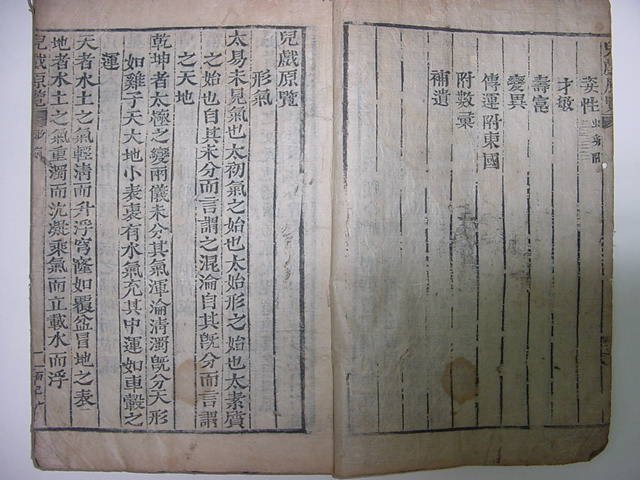 姿性
才敏
壽富
變異
傳運附東國
附數彙
補遺
兒戲原覽
形氣
太易未見氣也太初氣之始也太始形之始也太素質
之始也自其未分而言謂之混淪自其旣分而言謂
之天地
乾坤者太極之變兩儀未分其氣渾淪淸濁旣分天形
如雞子天大地小表裏有水氣充其中運如車轂之
運
天者水土之氣輕淸而升浮穹窿如覆盆冒地之表
地者水土之氣重濁而沈凝乘氣而立載水而浮
兒戲原覽